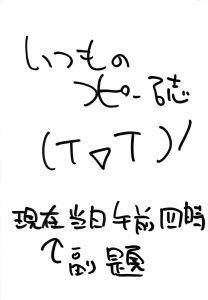 いつもの
コピー誌
(T▽T)/
現在当日午前四時
↑副題